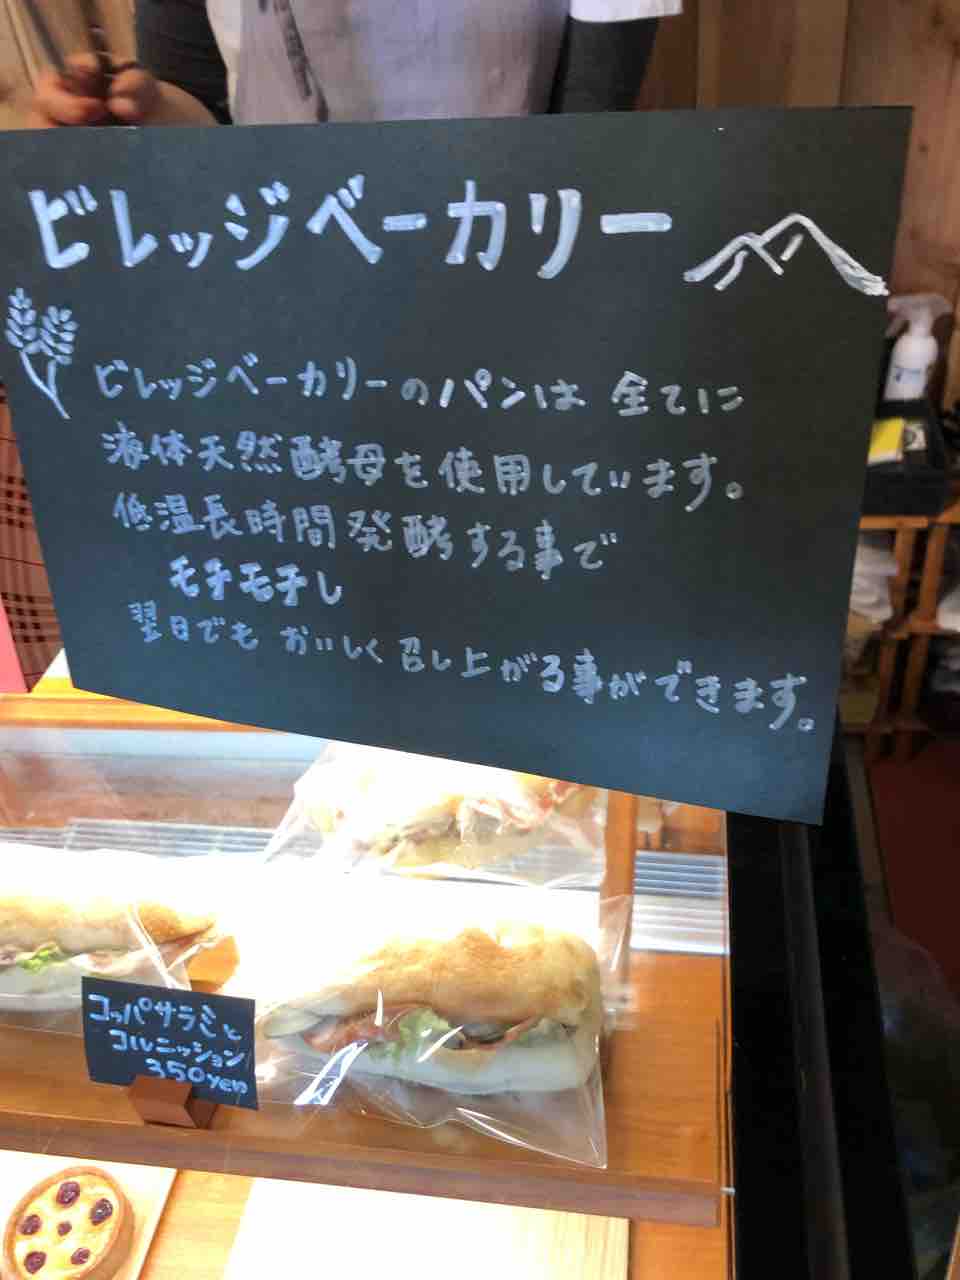 ビレッジベーカリー
ビレッジベーカリーのパンは 全てに
液体天然酵母を使用しています。
低温長時間発酵する事で
モチモチし
翌日でも おいしく召し上がる事ができます。
コッパサラミと
コルニッション
350yen